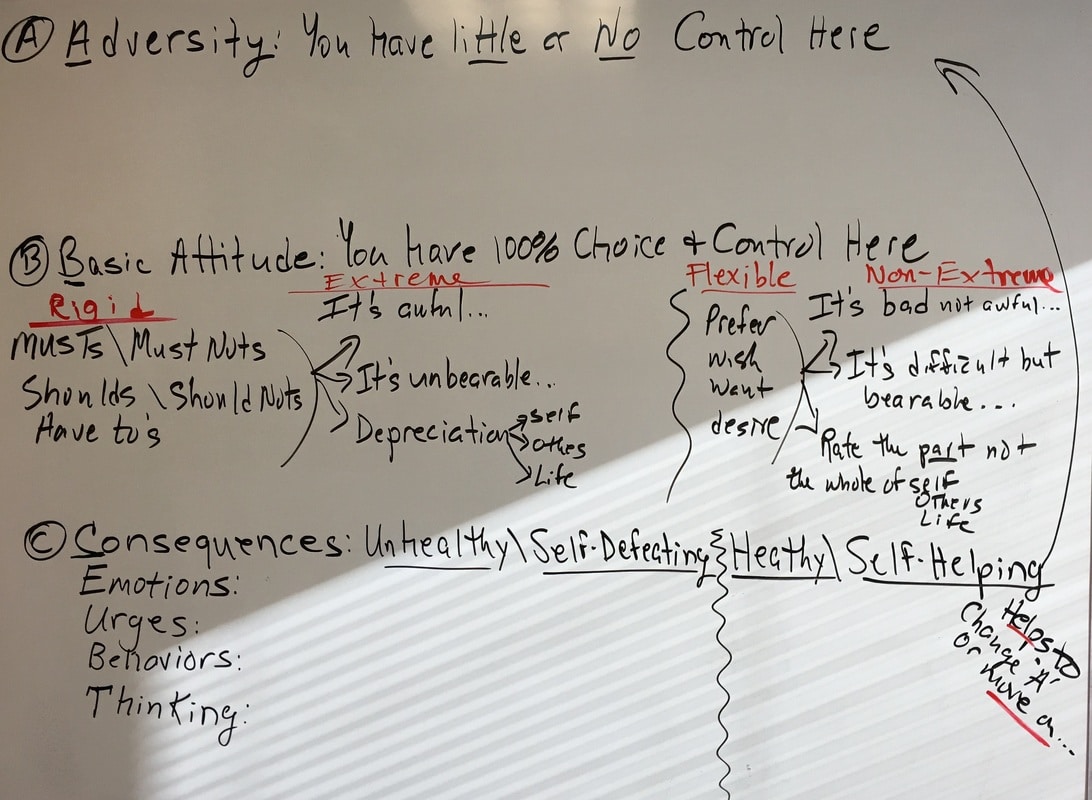 Ⓐ Adversity: You have little or No Control Here
Ⓑ Basic Attitude: You have 100% Choice + Control Here
Rigid
Musts\Must Nots
Shoulds\Should Nots
Have to's
Extreme
It's awful...
It's unbearable...
Depreciation
self
Others
Life
Flexible
Prefer
wish
want
desire
Non-Extreme
It's bad not awful...
It's difficult but
bearable...
Rate the part not
the whole of self
Others
Life
Ⓒ Consequences: Unhealthy\Self-Defeating Heathy\Self-Helping
Emotions:
Urges:
Behaviors:
Thinking:
Helps to
Change 'A'
Or move on...